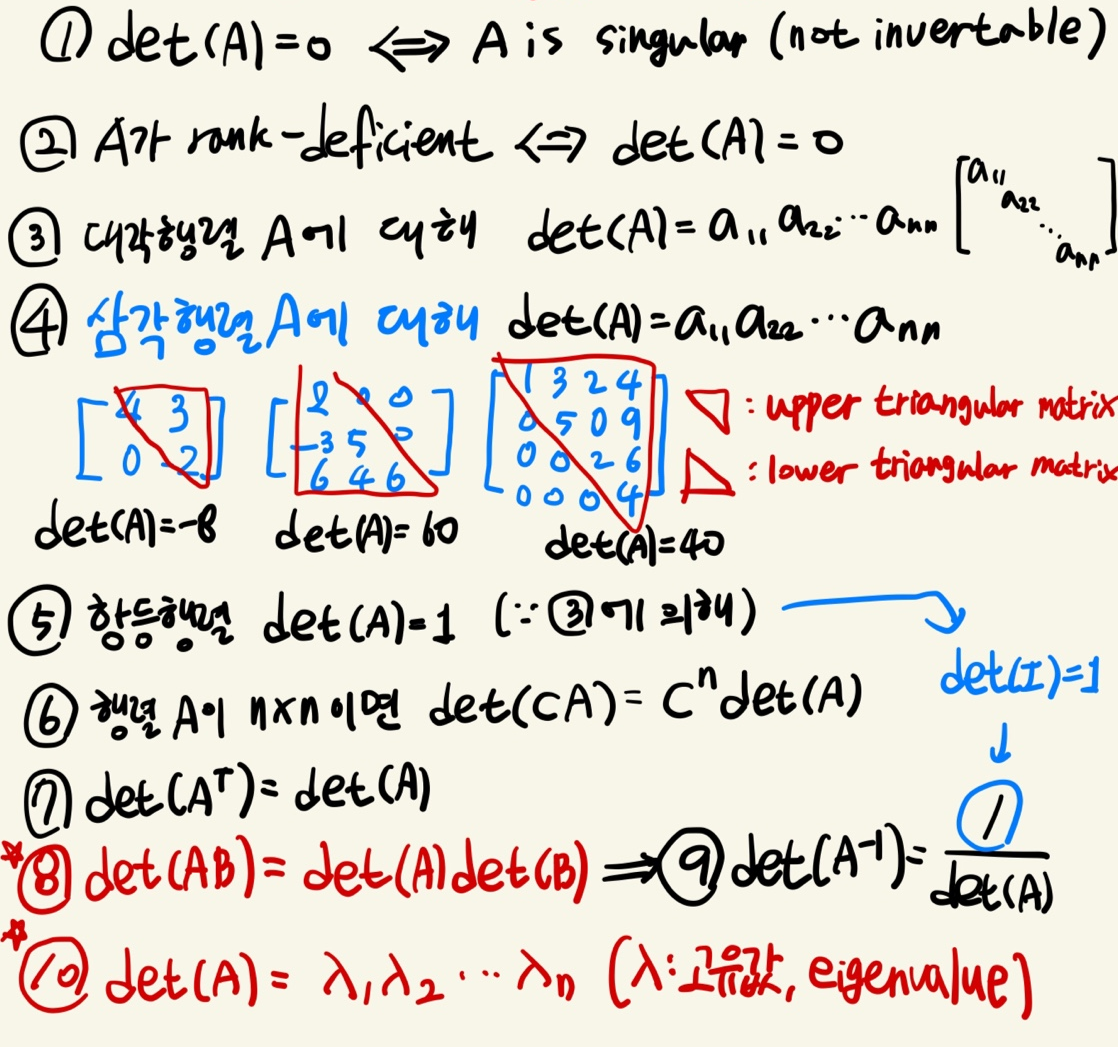 ① det(A)=0 ⟺ A is singular (not invertable)
② A가 rank-deficient ⟺ det(A)=0
③ 대각행렬 A에 대해 det(A)=a₁₁a₂₂⋯aₙₙ [a₁₁ a₂₂ ⋱ aₙₙ]
④ 삼각행렬 A에 대해 det(A)=a₁₁a₂₂⋯aₙₙ
[4 3 [2 0 0 [1 3 2 4 ▽ : upper triangular matrix
0 -2] -3 5 0 0 5 0 9
6 4 6] 0 0 2 6 △ : lower triangular matrix
0 0 0 4]
det(A)=-8 det(A)=60 det(A)=40
⑤ 항등행렬 det(A)=1 (∵ ③에 의해) → det(I)=1
⑥ 행렬 A이 n×n이면 det(cA)=cⁿdet(A) ↓
⑦ det(Aᵀ)=det(A)
☆⑧ det(AB)=det(A)det(B) ⟹ ⑨ det(A⁻¹)=1/det(A)
☆⑩ det(A)=λ₁λ₂⋯λₙ (λ:고유값, eigenvalue)